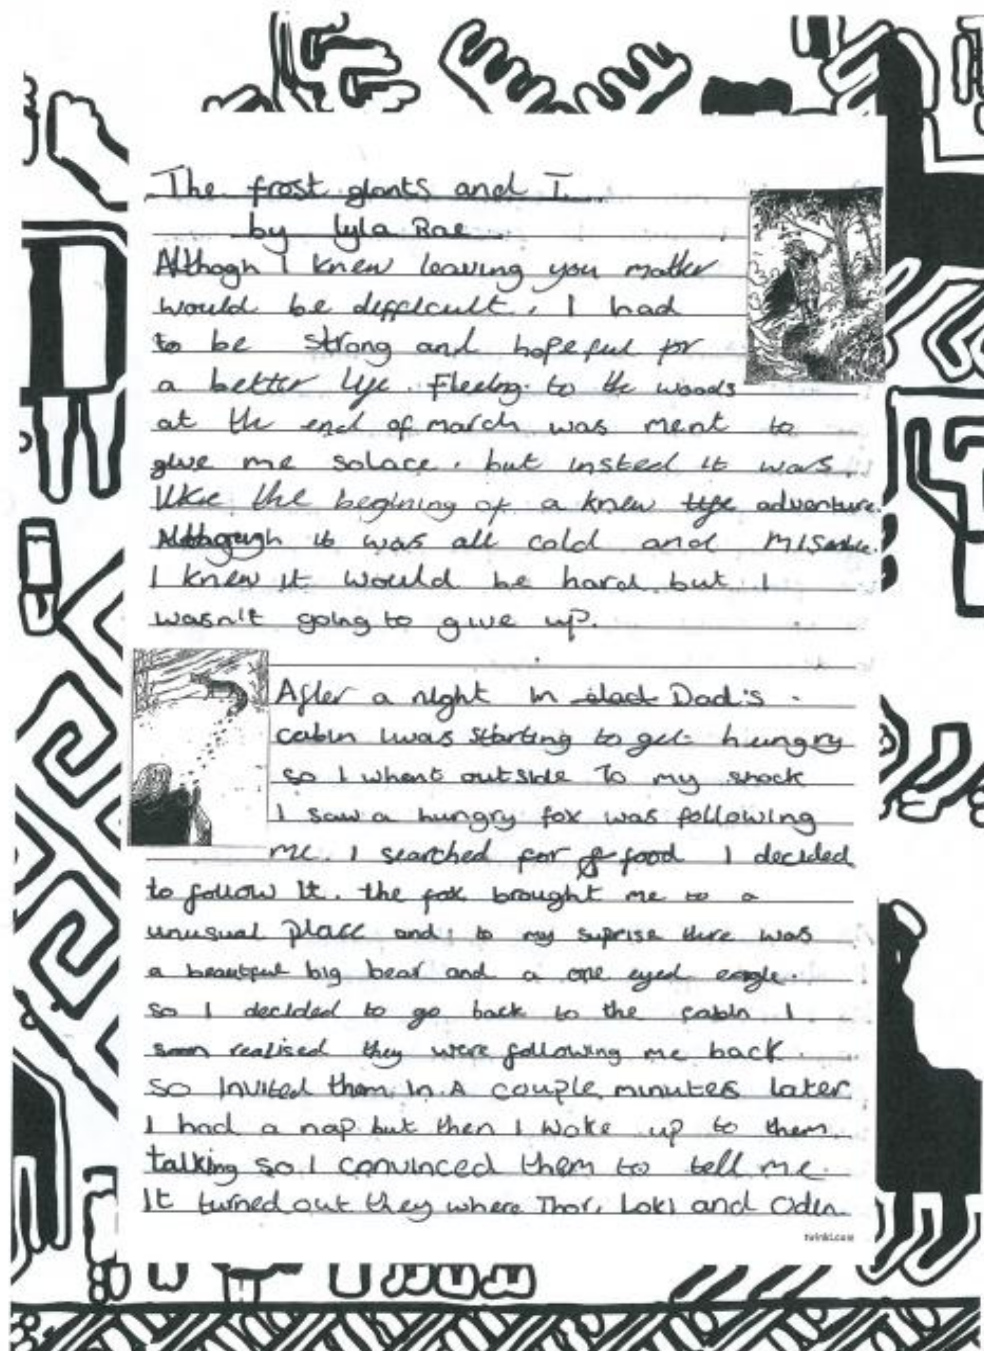 The frost giants and I.
by Lyla Rae
Althogh I knew leaving you mother
would be difficult, I had
to be strong and hopeful for
a better life. Fleeing to the woods
at the end of march was ment to
give me solace, but insted it was
like the begining of a knew life adventure.
Although it was all cold and
I knew it would be hard but I
wasn't going to give up.
After a night in Dad's
cabin I was starting to get hungry
so I whent outside To my shock
I saw a hungry fox was following
me. I searched for food I decided
to follow it. the fox brought me to a
unusual place and to my suprise there was
a beautiful big bear and a one eyed eagle.
so I decided to go back to the cabin I
soon realised they were following me back.
so Invited them in. A couple minutes later
I had a nap but then I woke up to them
talking so I convinced them to tell me.
It turned out they where Thor, Loki and Odin
twinkl.com